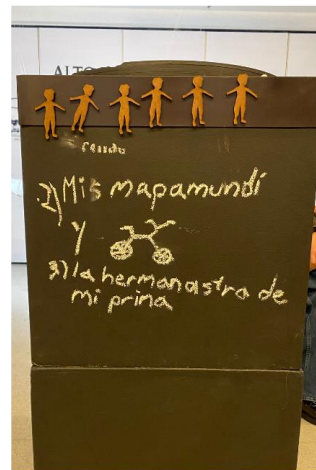 ALTO
2) Mis mapamundí
y
3) la hermanastra de
mi prima